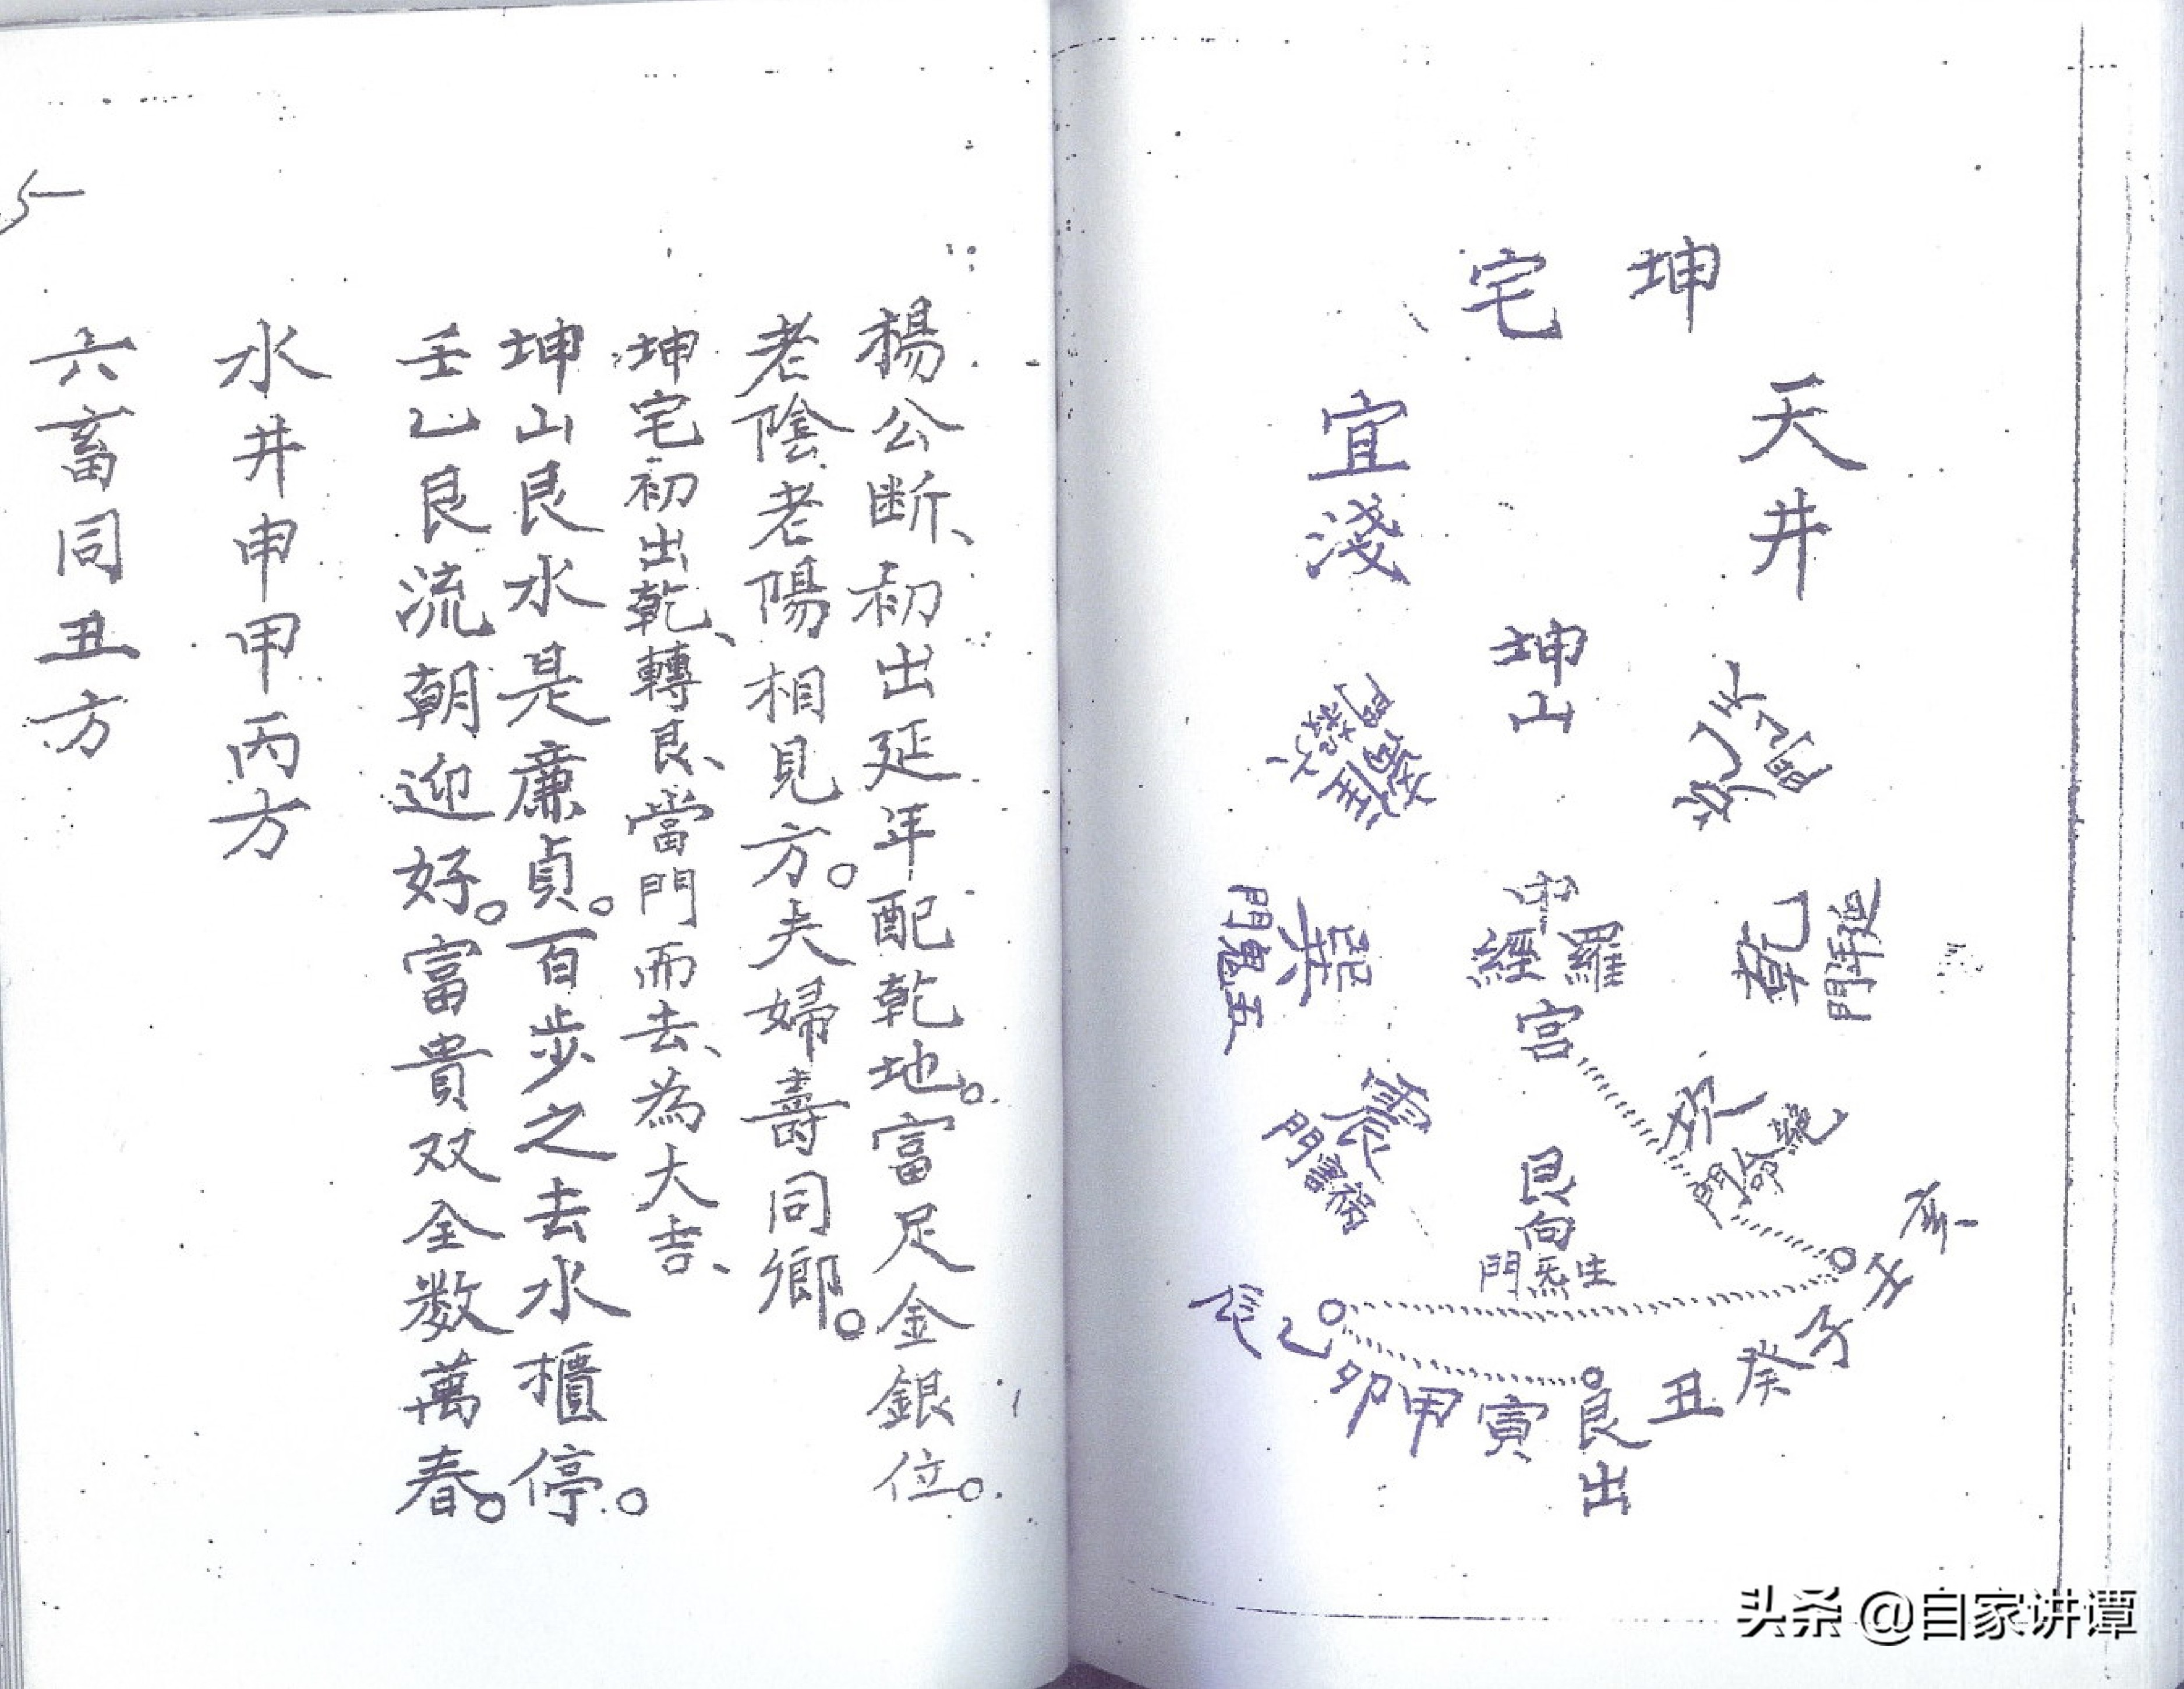 坤宅
天井
宜淺
坤山
兌
天乙門
離
六煞門
乾
延年門
中宮
羅經
巽
五鬼門
坎
絕命門
震
禍害門
艮向
生炁門
亥壬子癸丑艮寅甲卯乙辰
出
楊公斷、初出延年配乾地。富足金銀位。
老陰老陽相見方。夫婦壽同鄉。
坤宅初出乾、轉艮、當門而去、為大吉、
坤山艮水是廉貞。百步之去水櫃停。
壬乙艮流朝迎好。富貴双全数萬春。
水井申甲丙方
六畜同丑方
头杀 @自家讲谭